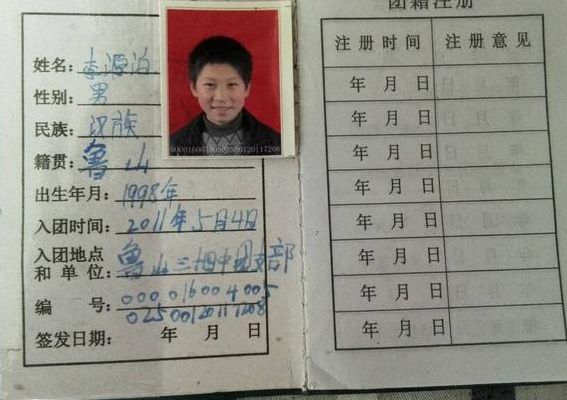 姓名：李源泊
性别：男
民族：汉族
籍贯：鲁山
出生年月：1998年
入团时间：2011年5月4日
入团地点
和单位：鲁山三相中团支部
编号：000016004005
02500120117208
签发日期： 年 月 日
团籍注册
注册时间 注册意见
年 月 日
年 月 日
年 月 日
年 月 日
年 月 日
年 月 日
年 月 日
年 月 日